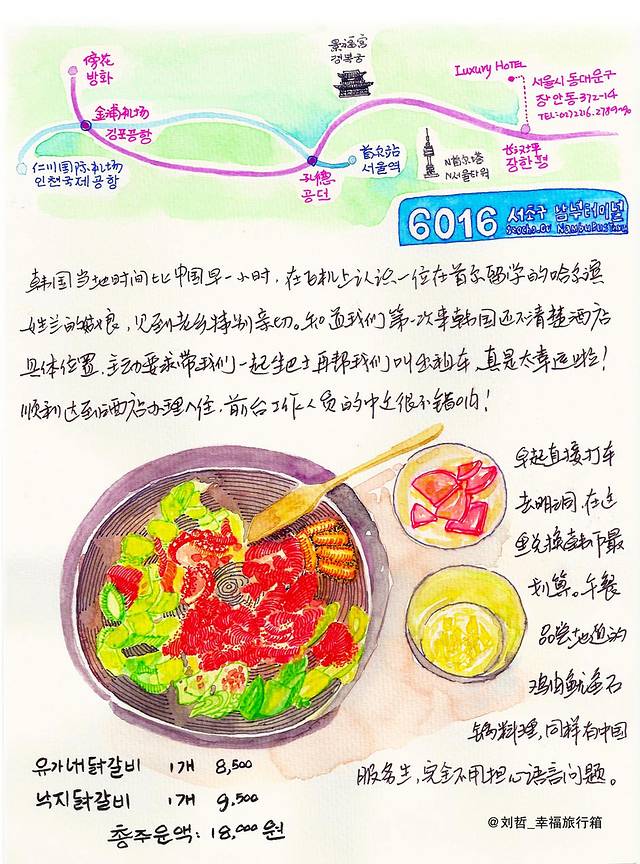 景福宫
경복궁
傍花
방화
Luxury HOTEL
서울시 동대문구
장안동 372-14
金浦机场
김포공항
首尔站
서울역
仁川国际机场
인천국제공항
孔德
공덕
N首尔塔
N서울타워
장한평
6016 서초구 남부터미널
韩国当地时间比中国早一小时,在飞机上认识一位在首尔留学的哈尔滨
姓兰的姑娘,见到老乡特别亲切。知道我们第一次来韩国还不清楚酒店
具体位置,主动要求带我们一起坐巴士再帮我们叫出租车,真是太幸运啦!
顺利达到酒店办理入住,前台工作人员的中文很不错哟!
早起直接打车
去明洞,在这
里兑换韩币最
划算。午餐
品尝地道的
鸡肉鱿鱼石
锅料理,同样有中国
服务生,完全不用担心语言问题。
유가네닭갈비 1개 8,500
낙지닭갈비 1개 9,500
총주문액: 18,000원
@刘哲_幸福旅行箱